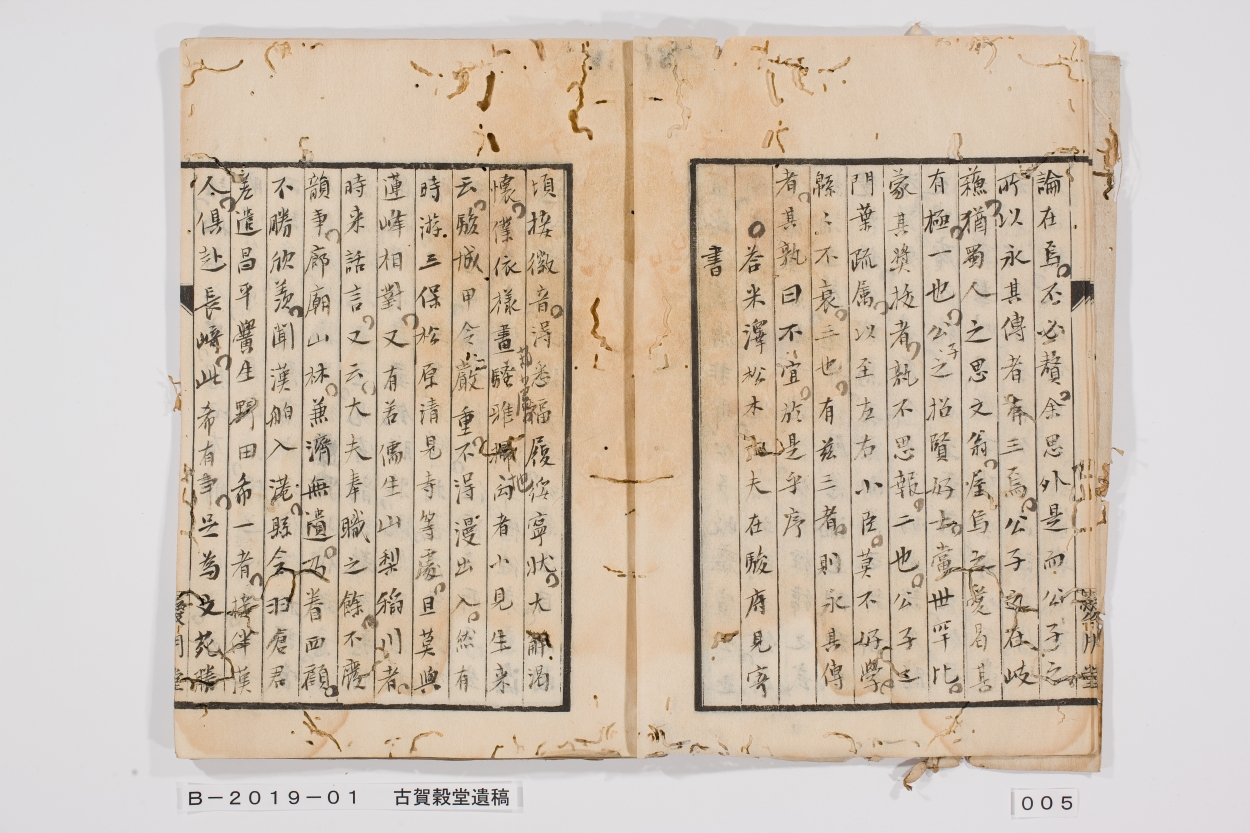 論在焉不必贅余思外是而公子之
所以永其傳者有三焉公子之在岐
蘓猶蜀人之思文翁崖烏之愛曷其
有極一也公子之招賢好士當世罕比
蒙其奬抜者孰不思報二也公子之
門葉疏属以至左右小臣莫不好學
緜々不衰三也有兹三者則永其傳
者其孰曰不宜於是乎序
荅米澤松木 夫在駿府見寄
書
頃接徽音得悉福履綏寧状大解渇
懷僕依様畫騒雅 者小見生来
云駿城甲令嚴重不得漫出入然有
時游三保松原清見寺等處旦莫與
蓮峰相對又有若儒生山梨稲川者
時来話言又云大夫奉職之餘不廢
韻事廊廟山林兼濟無遺乃眷西顧
不勝欣羨聞漢舶入港縣令羽倉君
差遣昌平黌生野田希一者接伴漢
人倶赴長崎此希有事足為文苑勝
愛月堂
B－2019－01　古賀穀堂遺稿
005